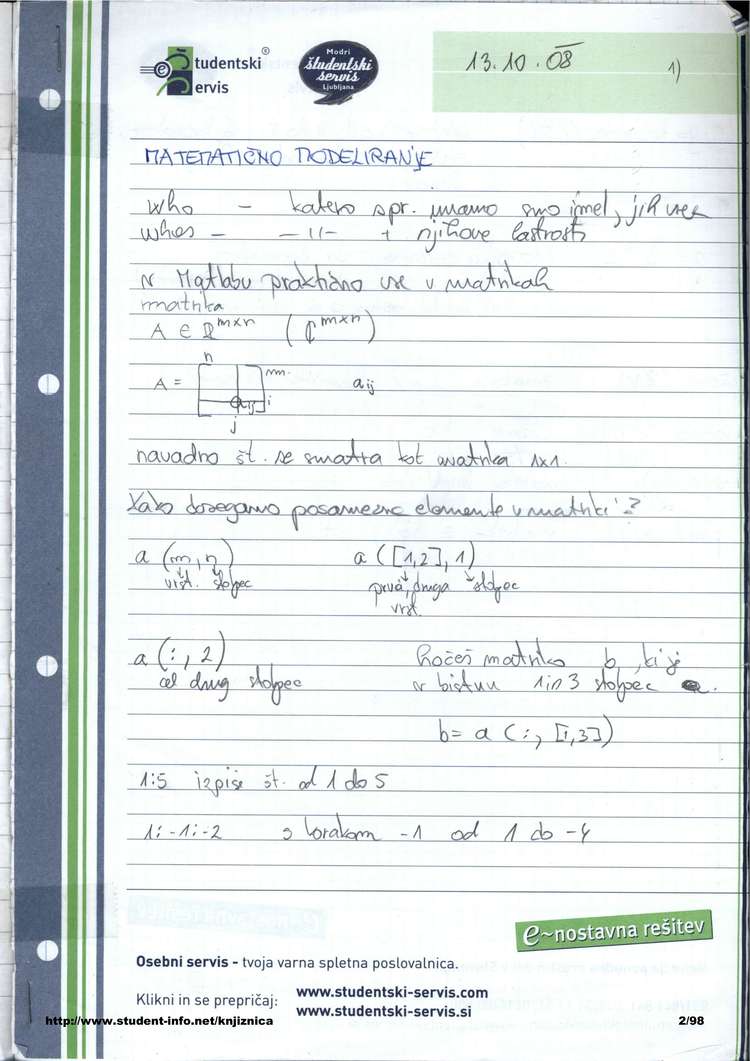 Študentski®
Servis
Modri
študentski
servis
Ljubljana
13.10.08
1)
MATEMATIČNO MODELIRANJE
who - katero spr. imamo smo imel, jih vse
whos - -11- + njihove lastnosti
v Matlabu praktično vse v matrikah
matrika
A ∈ ℝ^mxn (ℂ^mxn)
n
A = m aij
aij i
j
navadno št. se smatra kot matrika 1x1.
Kako dosegamo posamezne elemente v matriki?
a (m,n) a ([1,2],1)
vrst. stolpec prva, druga stolpec
vrst.
a (:,2) hočeš matriko b, ki je
cel drug stolpec v bistvu 1 in 3 stolpec a.
b= a (:, [1,3])
1:5 izpiše št. od 1 do 5
1:-1:-2 s korakom -1 od 1 do -4
e~nostavna rešitev
Osebni servis - tvoja varna spletna poslovalnica.
Klikni in se prepričaj: www.studentski-servis.com
www.studentski-servis.si
http://www.student-info.net/knjiznica 2/98